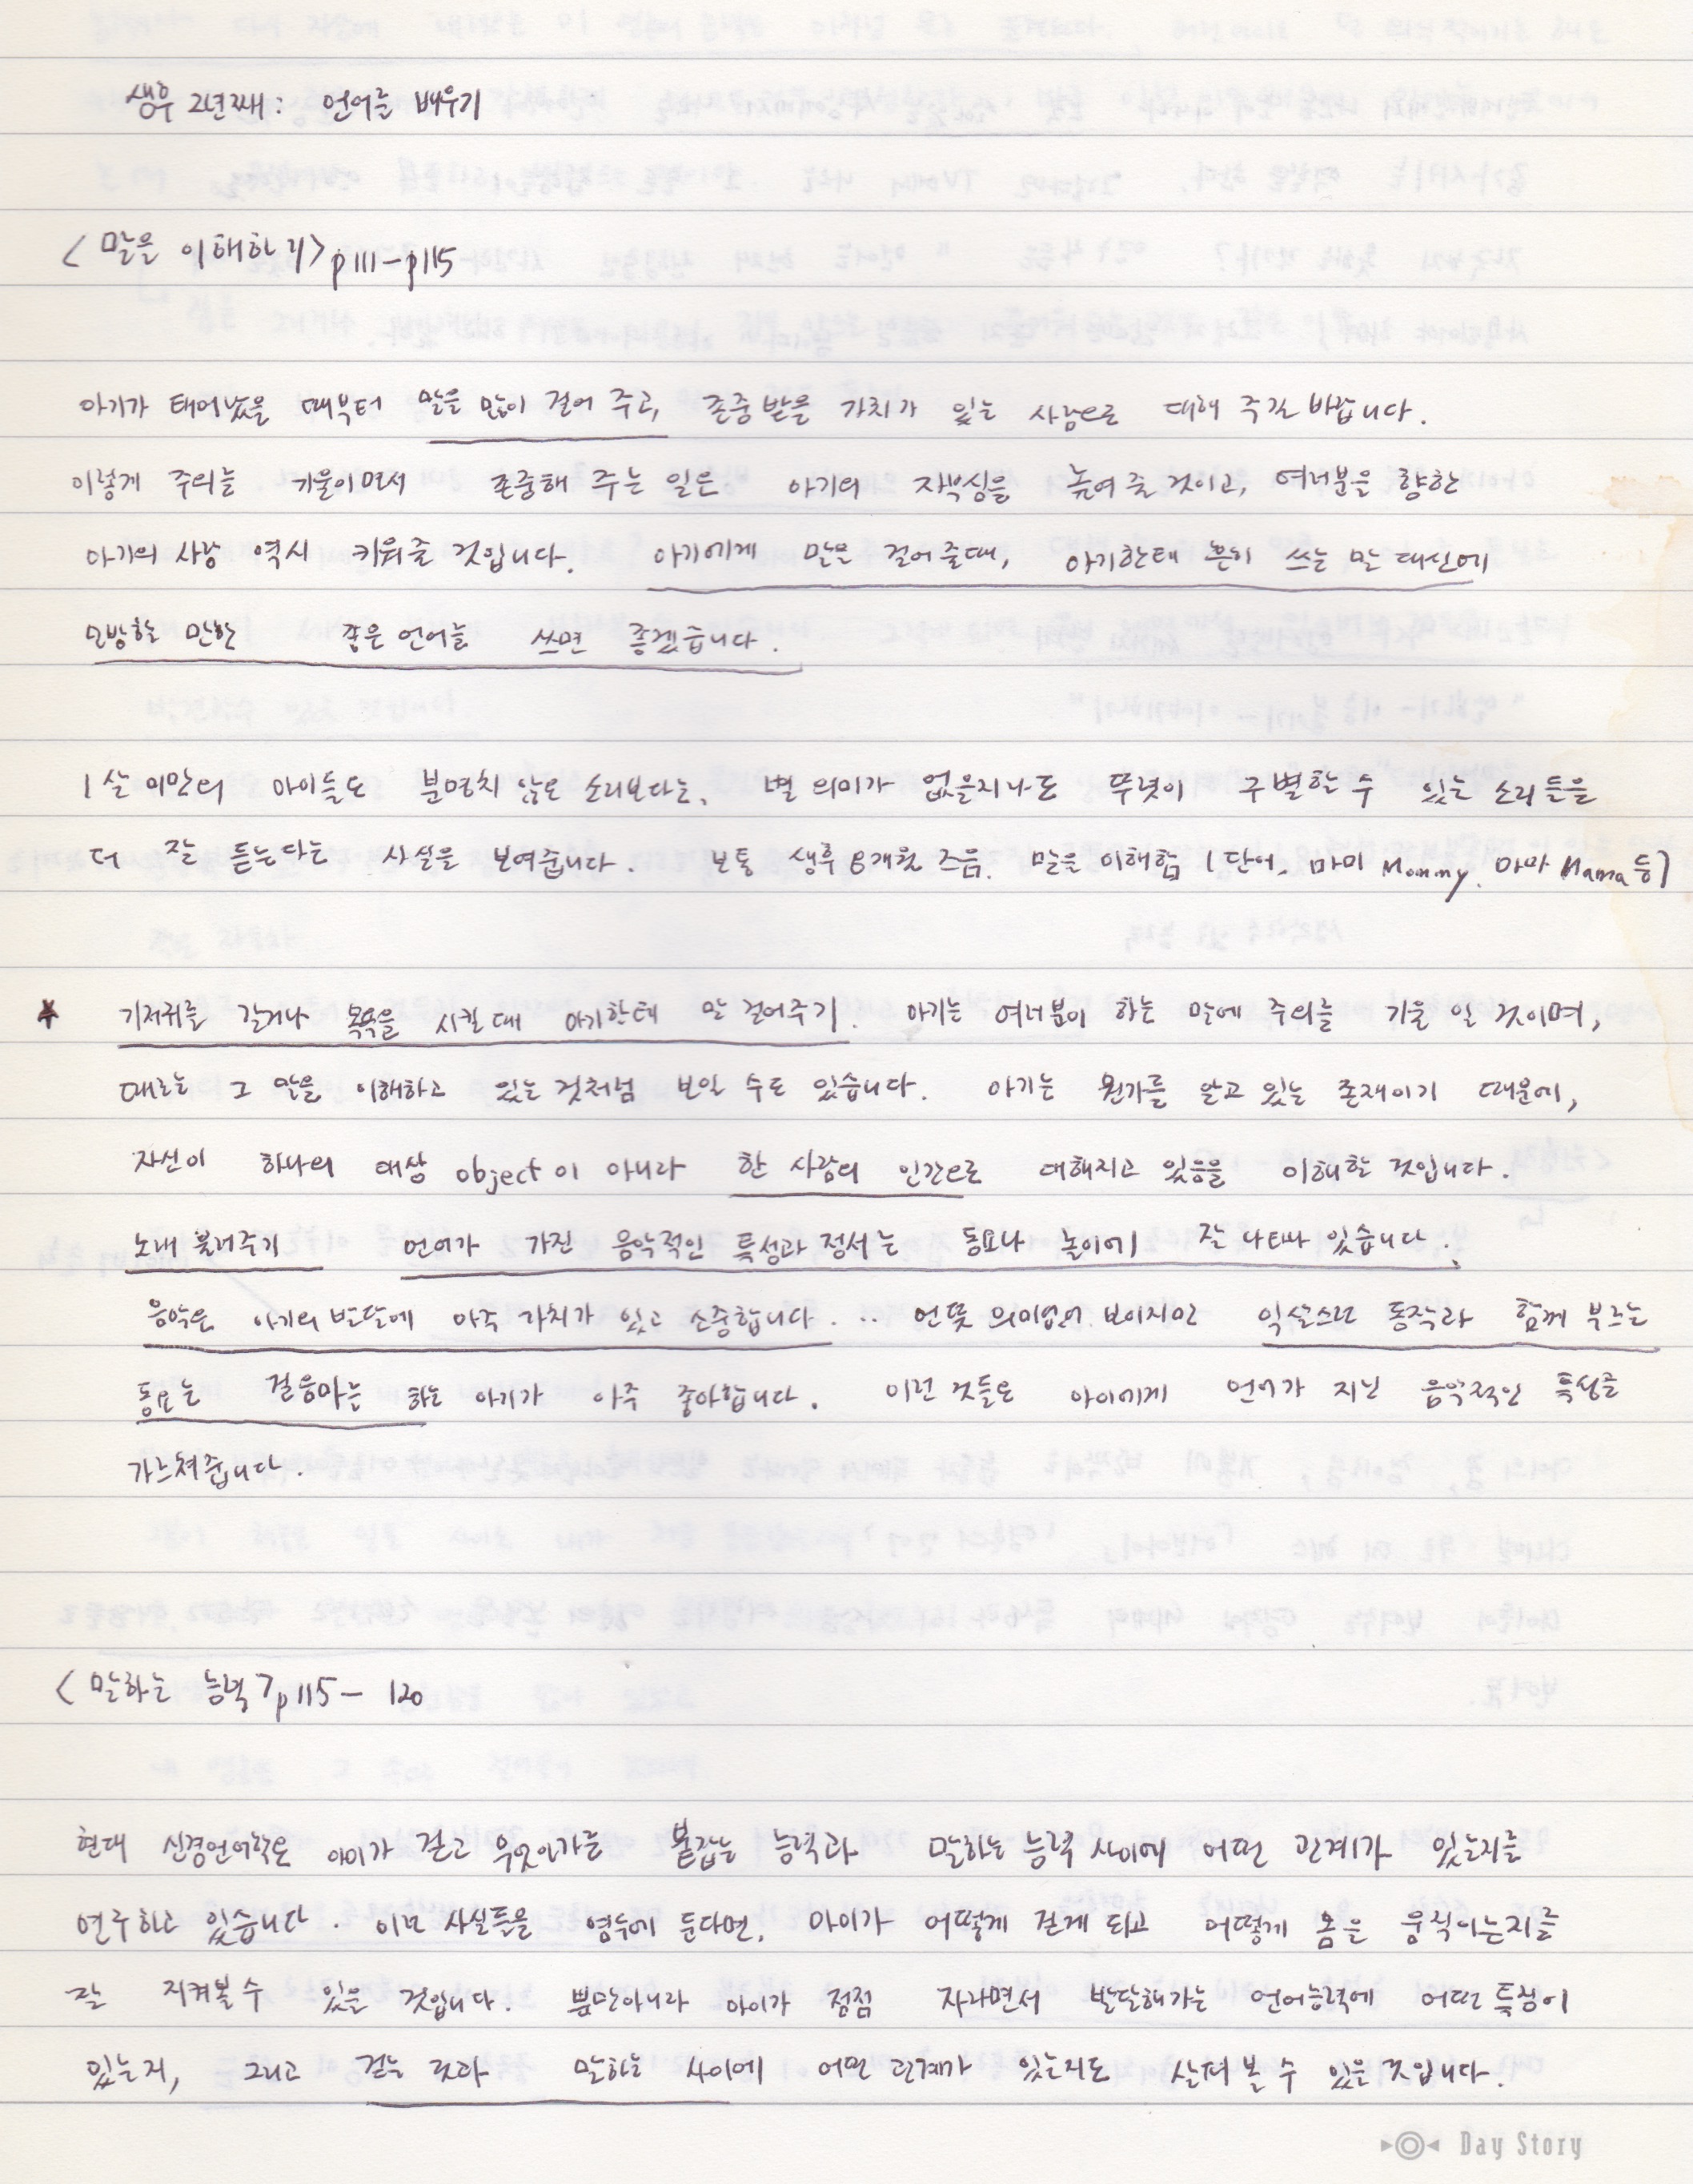 생후 2년째: 언어를 배우기
< 말을 이해하기> p111-p115
아기가 태어났을 때부터 말을 많이 걸어 주고, 존중 받을 가치가 있는 사람으로 대해 주길 바랍니다.
이렇게 주의를 기울이면서 존중해 주는 일은 아기의 자부심을 높여 줄 것이고, 여러분을 향한
아기의 사랑 역시 키워줄 것입니다. 아기에게 말을 걸어 줄때, 아기한테 흔히 쓰는 말 대신에
모방할 만한 좋은 언어를 쓰면 좋겠습니다.
1살 미만의 아이들도 분명치 않은 소리보다는, 별 의미가 없을지나도 뚜렷이 구별할 수 있는 소리들을
더 잘 듣는다는 사실을 보여줍니다. 보통 생후 8개월 즈음. 말을 이해함 (단어, 마미 Mommy. 마마 Mama 등)
* 기저귀를 갈거나 목욕을 시킬 때 아기한테 말 걸어주기. 아기는 여러분이 하는 말에 주의를 기울 일 것이며,
때로는 그 말을 이해하고 있는 것처럼 보일 수도 있습니다. 아기는 뭔가를 알고 있는 존재이기 때문에,
자신이 하나의 대상 object 이 아니라 한 사람의 인간으로 대해지고 있음을 이해할 것입니다.
노래 불러주기 언어가 가진 음악적인 특성과 정서는 동요나 놀이에 잘 나타나 있습니다.
음악은 아기의 발달에 아주 가치가 있고 소중합니다... 언뜻 의미없어 보이지만 익살스런 동작과 함께 부르는
동요는 걸음마는 하는 아기가 아주 좋아합니다. 이런 것들은 아이에게 언어가 지닌 음악적인 특성을
가르쳐줍니다.
< 말하는 능력 > p115 - 120
현대 신경언어학은 아이가 걷고 무엇인가를 붙잡는 능력과 말하는 능력 사이에 어떤 관계가 있는지를
연구하고 있습니다. 이런 사실들을 염두에 둔다면, 아이가 어떻게 걷게 되고 어떻게 몸을 움직이는지를
잘 지켜볼 수 있을 것입니다. 뿐만아니라 아이가 점점 자라면서 발달해가는 언어능력에 어떤 특징이
있는지, 그리고 걷는 것과 말하는 사이에 어떤 관계가 있는지도 살펴 볼 수 있을 것입니다.
Day Story